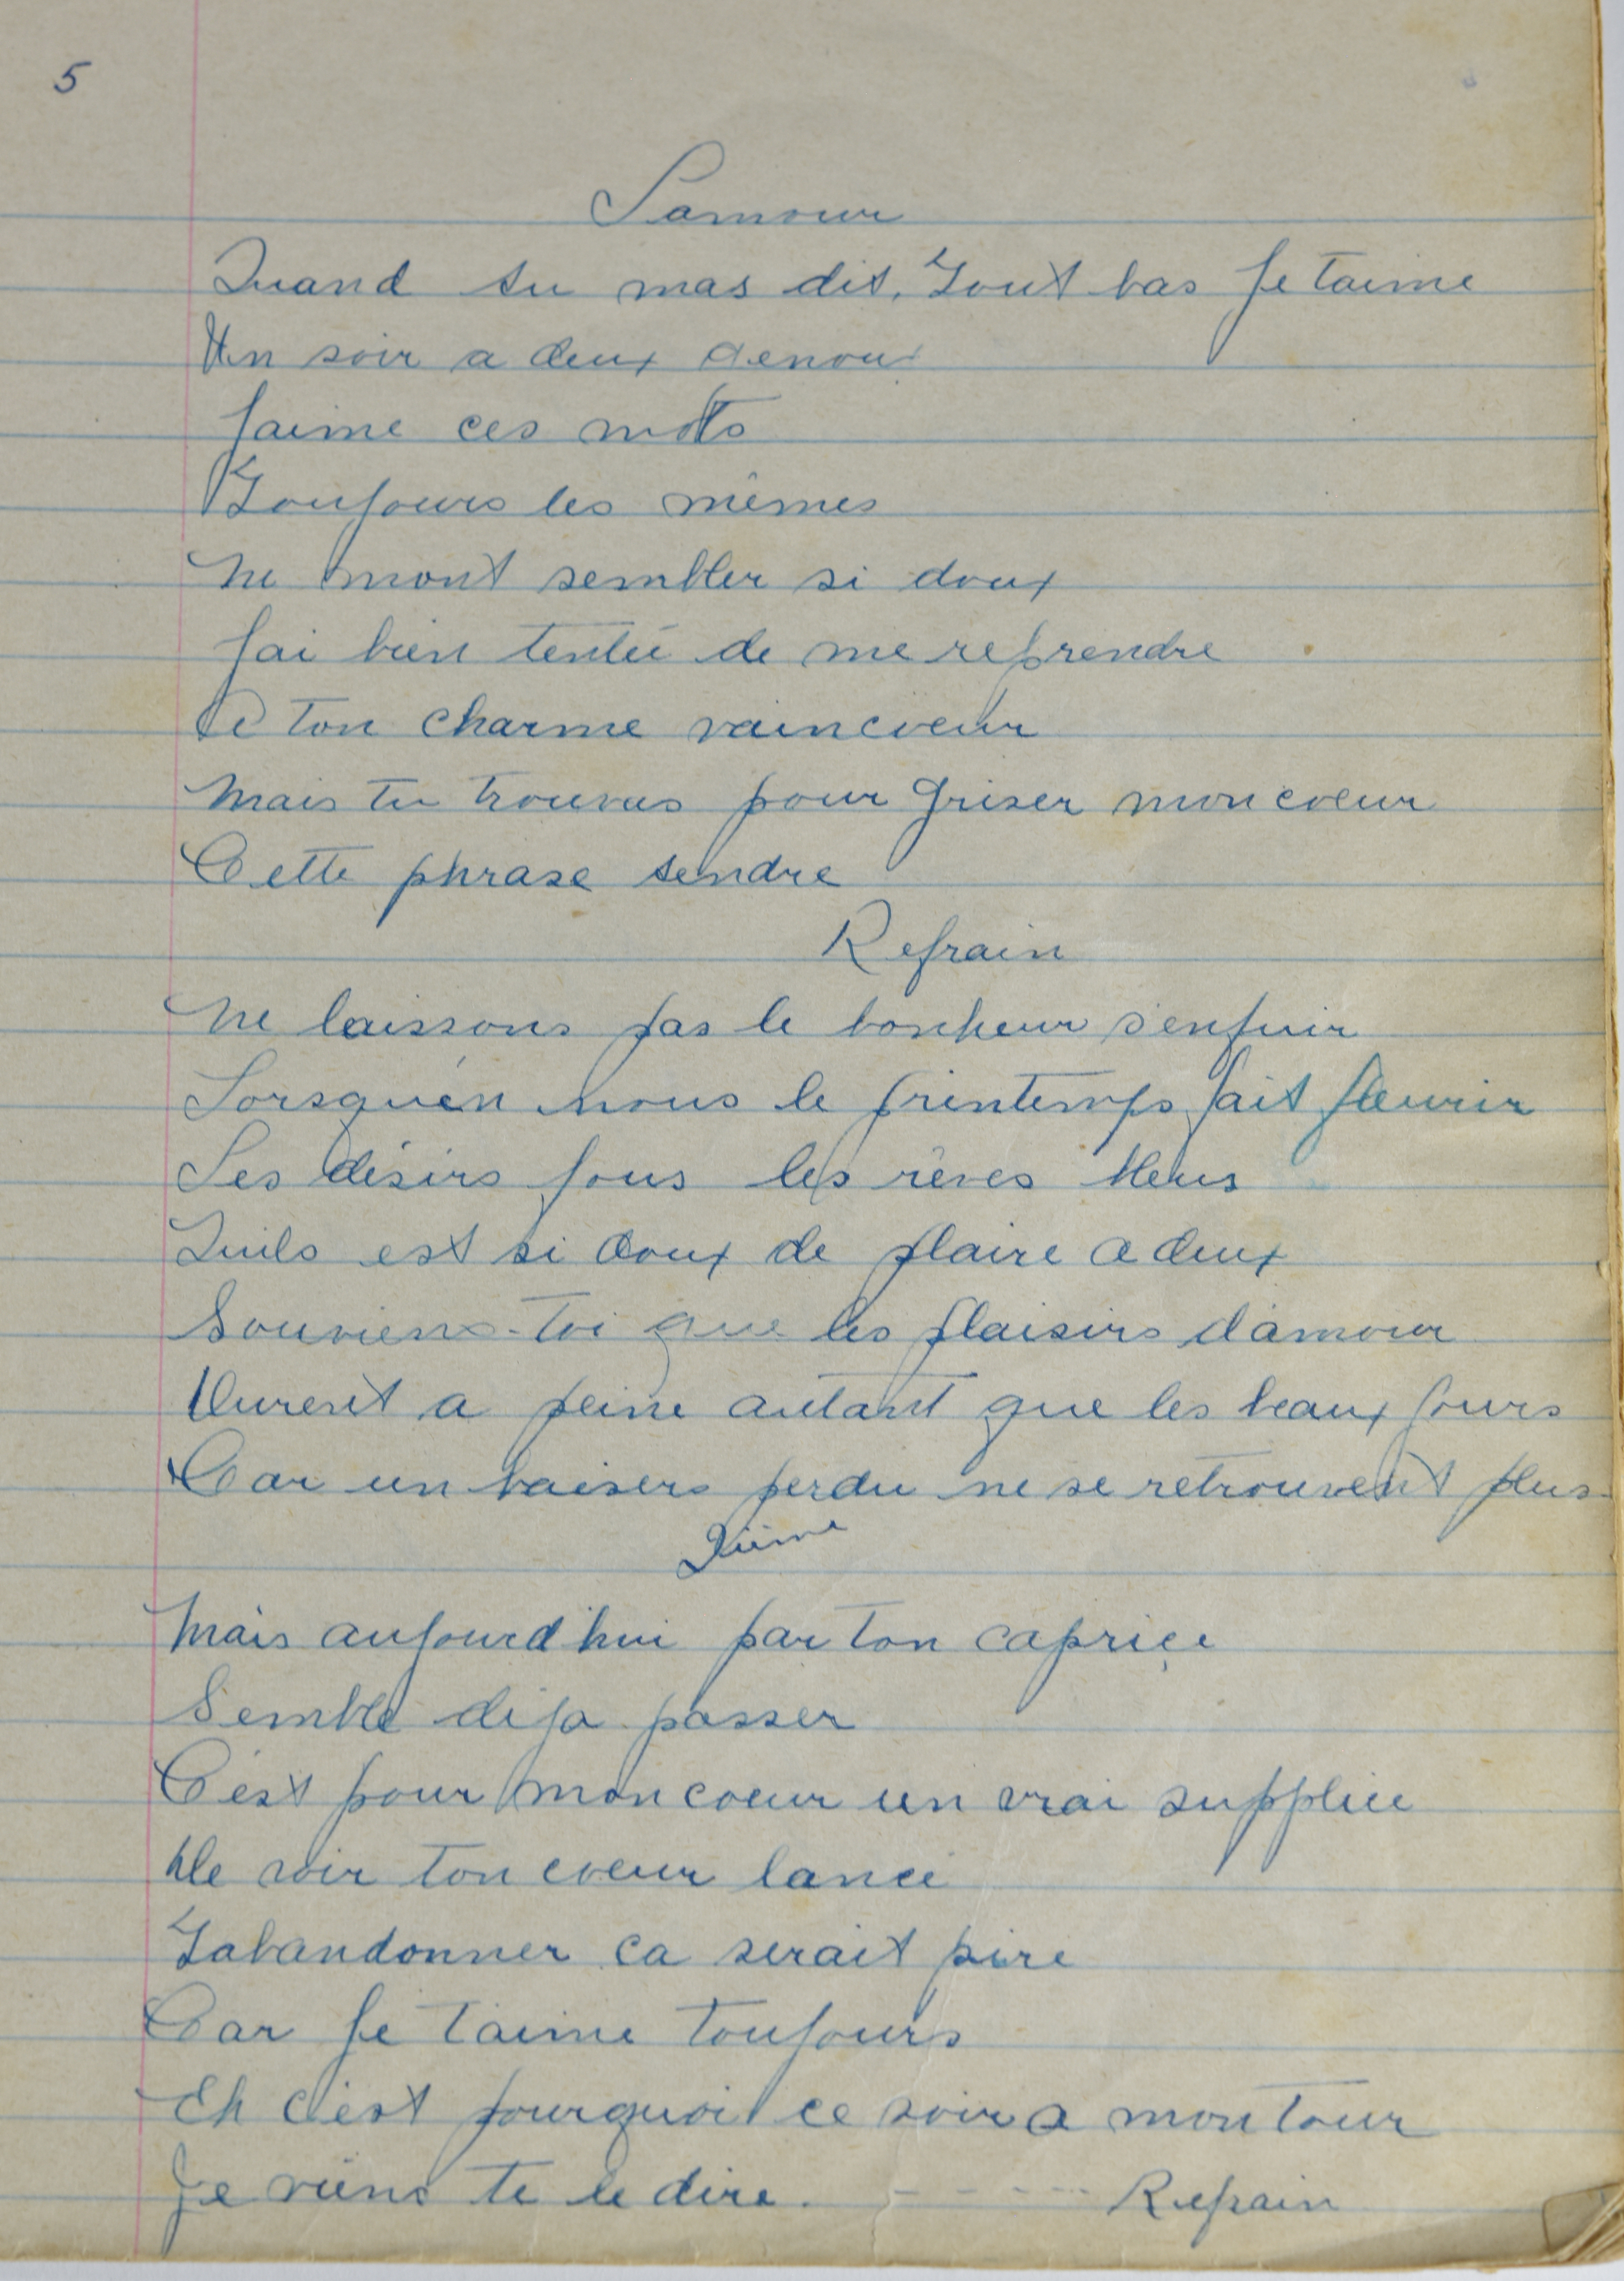 5
Lamour
Quand tu mas dit, Tout bas Je taime
Un soir a deux genoux
Jaime ces mots
Toujours les mêmes
Ne mont sembler si doux
Jai bien tentée de me reprendre
A ton charme vaincoeur
Mais tu trouvas pour griser mon coeur
Cette phrase tendre
Refrain
Ne laissons pas le bonheur s'enfuir
Lorsqu'en nous le printemps fait fleurir
Les désirs fous les rêves bleus
Quils est si doux de plaire a deux
Souviens-toi que les plaisirs d'amour
Durent a peine autant que les beaux jours
Car un baisers perdu ne se retrouvent plus
2ième
Mais aujourd'hui par ton caprice
Semble déja passer
C'est pour mon coeur un vrai supplice
De voir ton coeur lancé
Tabandonner ca serait pire
Car Je t'aime toujours
Eh c'est pourquoi ce soir a mon tour
Je viens te le dire. - - - - - Refrain